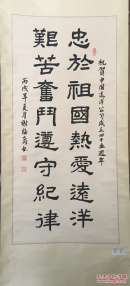 祝賀中國遠洋公司成立四十五週年
忠於祖國熱愛遠洋
艱苦奮鬥遵守紀律
丙戌年夏月